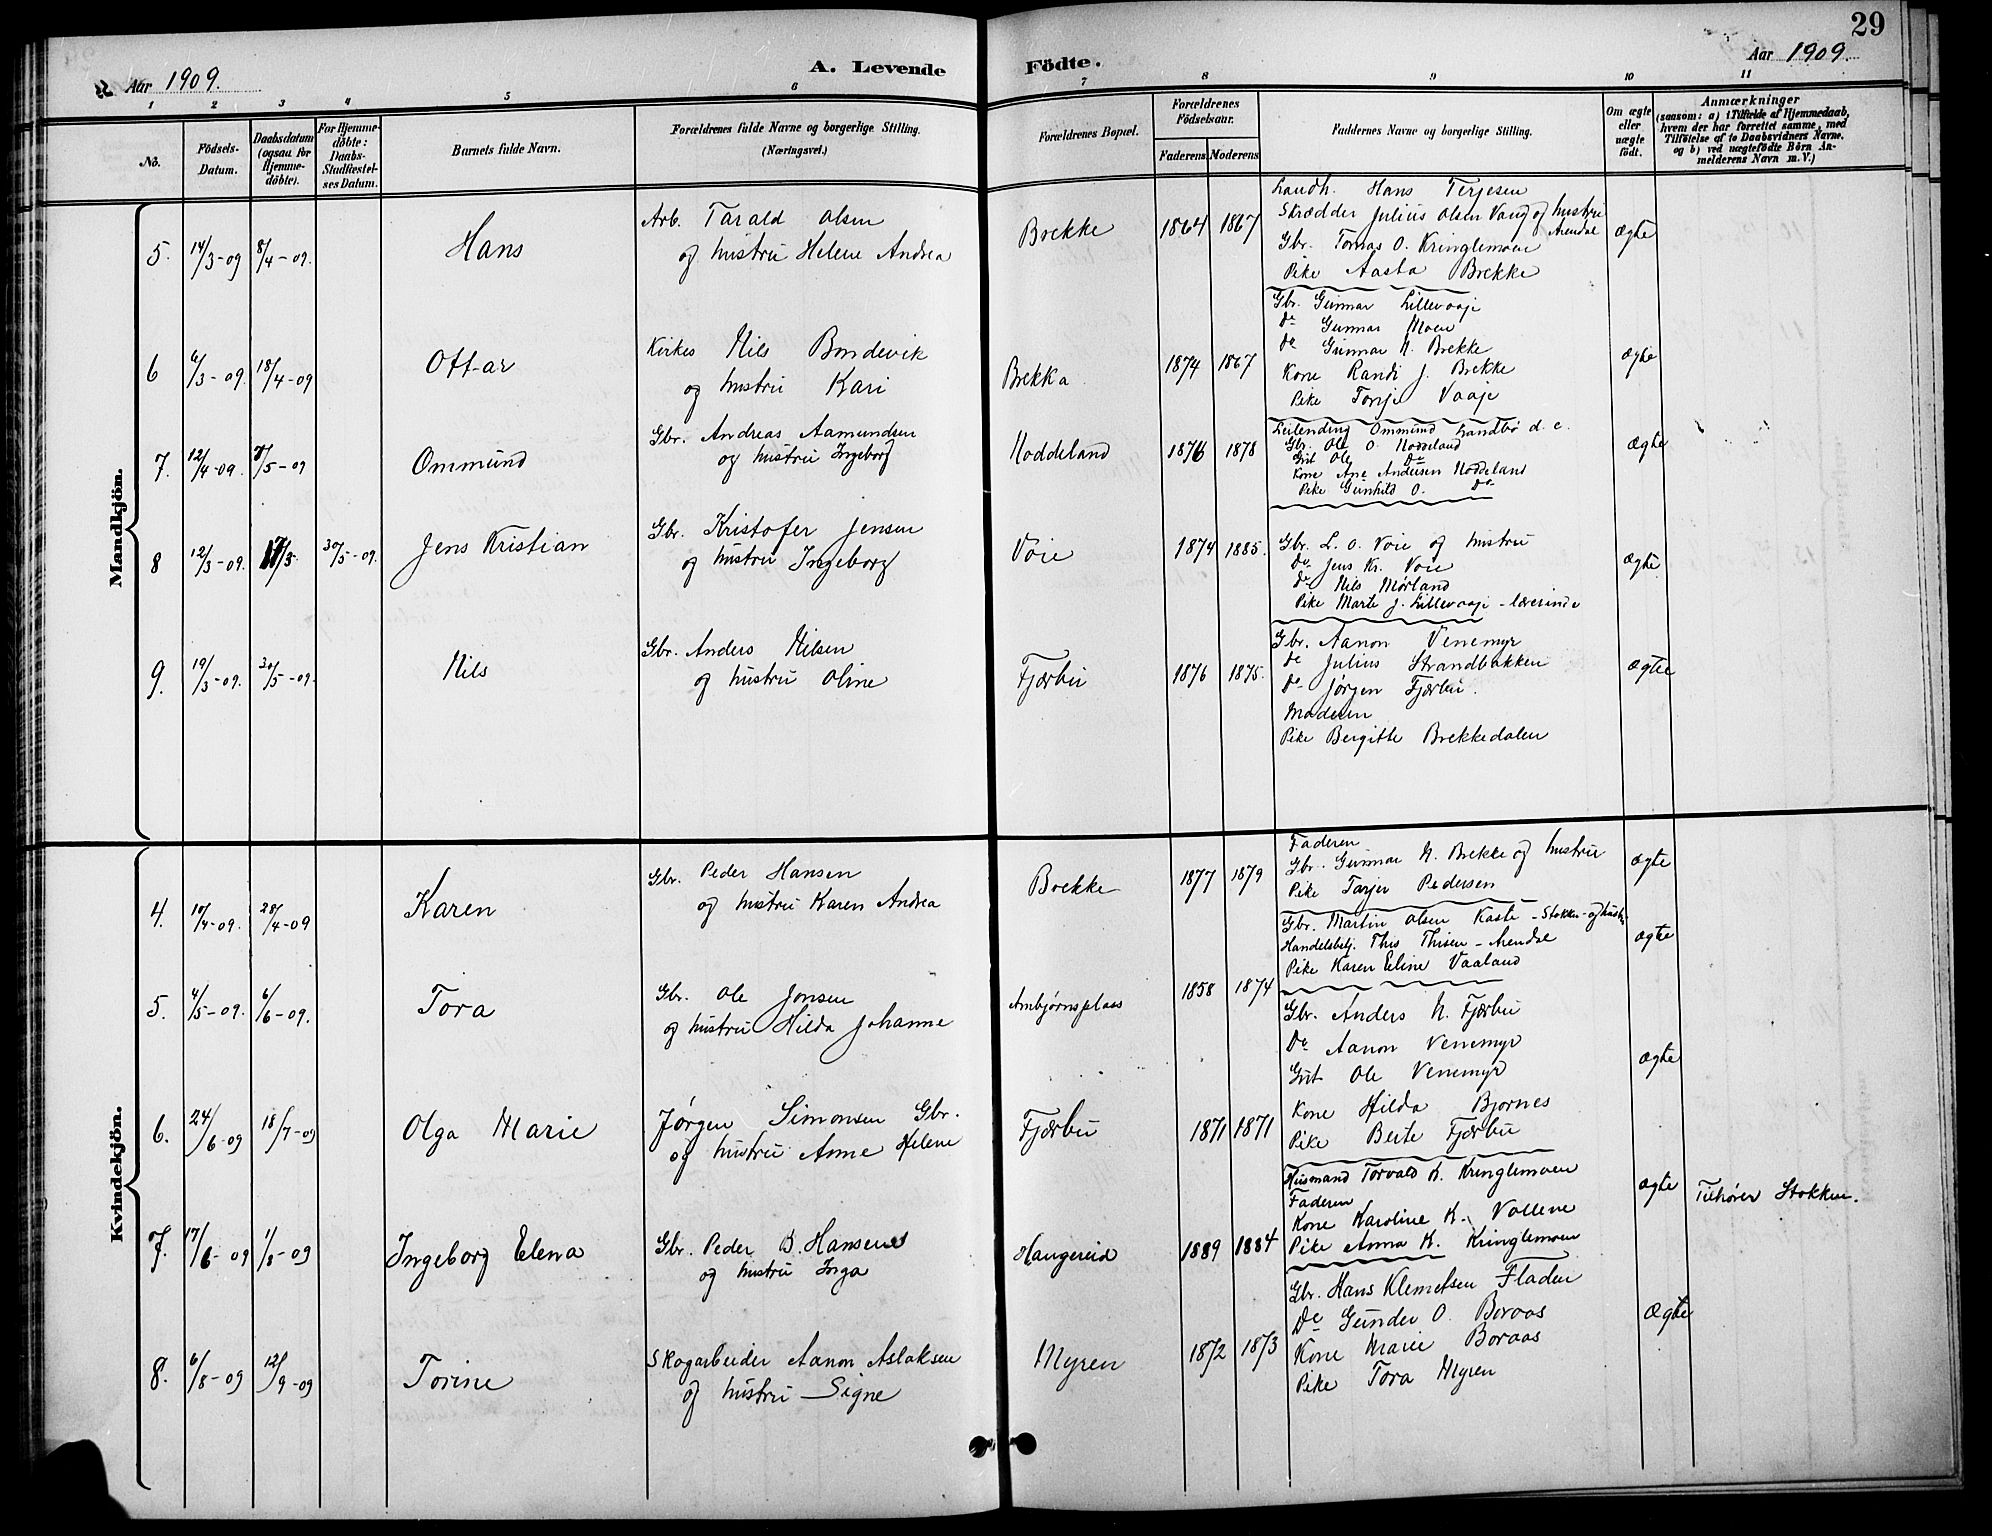 29
Aar 1909.
A. Levende Födte.
Aar 1909.
1 2 3 4 5 6 7 8 9 10 11
No.
Födsels-
Datum.
Daabsdatum
(ogsaa for
Hjemme-
döbte).
For Hjemme-
döbte:
Daabs-
Stadfæstel-
ses Datum.
Barnets fulde Navn.
Forældrenes fulde Navne og borgerlige Stilling.
(Næringsvei.)
Forældrenes Bopæl.
Forældrenes
Födselsaar.
Faderens. Moderens.
Faddernes Navne og borgerlige Stilling.
Om ægte
eller
uægte
födt.
Anmærkninger
(saasom: a) i Tilfælde af Hjemmedaab,
hvem der har forrettet samme, med
Tilföielse af to Daabsvidners Navne,
og b) ved uægtefödte Börn An-
melderens Navn m. V.)
Mandkjön.
5. 14/3-09 8/4-09. Hans
Arb. Tarald Olsen
og hustru Helene Andrea
Brekke 1864 1867
Landh. Hans Terjesen
Skrædder Julius Olsen Vang og hustru
Arendal
Gbr. Tomas O. Kringlemoen
Pike Aasta Brekke
ægte
6 6/3-09. 18/4-09 Ottar
Kirkes Nils Bondevik
og hustru Kari
Brekka 1874 1867
Gbr. Gunnar Lillevaaje
do Gunnar Moen
do Gunnar N. Brekke
Kone Randi J. Brekke
Pike Tonje Vaaje
ægte
7. 12/4-09. /5-09 Ommund
Gbr. Andreas Aamundsen
og hustru Ingeborg
Noddeland 1876 1878
Leilending Ommund Landbø d. e.
Gbr. Ole O. Noddeland
Gut Ole Do
Kone Ane Andersen Noddeland
Pike Gunhild O. Do
ægte
8 12/3-09. 17/3. 30/5-09. Jens Kristian
Gbr. Kristofer Jensen
og hustru Ingeborg
Voie 1874 1885.
Gbr. L. O. Voie og hustru
Do Jens Kr. Voie
do Nils Mørland
Pike Marte J. Lillevaaje - lærerinde
ægte.
9. 19/3-09. 30/5-09. Nils
Gbr. Anders Nilsen
og hustru Oline
Fjærbu 1876 1875.
Gbr. Aanon Venemyr
do Julius Strandbakken
Do Jørgen Fjærbu.
Moderen
Pike Bergitte Brekkedalen
ægte
Kvindekjön.
4. 10/4-09. 28/4-09 Karen
Gbr. Peder Hansen
og hustru Karen Andrea
Brekke 1877 1879
Faderen
Gbr. Gunnar N. Brekke og hustru
Pike Tarjer Pedersen
ægte
5. 4/5-09. 6/6-09. Tora
Gbr. Ole Jonsen
og hustru Hilda Johanne
Ambjørnsplass 1858 1874
Gbr. Martin Olsen Kaste - Stokken - og hustru
Handelsbetj. This Thisen - Arendal
Pike Karen Eline Vaaland
ægte
6. 24/6-09 18/7-09 Olga Marie
Jørgen Simonsen Gbr.
og hustru Anne Helene
Fjærbu 1871 1871
Gbr. Anders N. Fjærbu
Do Aanon Venemyr
Gut Ole Venemyr
Kone Hilda Bjornes
Pike Berte Fjærbu
ægte
7. 17/6-09 1/8-09 Ingeborg Elena
Gbr. Peder B. Hansen
og hustru Inga
Haugereid 1889 1884
Husmand Torvald K. Kringlemoen
Faderen
Kone Karoline K. Vollene
Pike Anna K. Kringlemoen
ægte
Tilhører Stokken.
8. 6/8-09 12/9-09 Torine
Skogarbeider Aanon Aslaksen
og hustru Signe
Myren 1872 1873
Gbr. Hans Klemetsen Fladen
Do Gunder O. Boraas
Kone Marie Boraas
Pike Tora Myren
Ægte